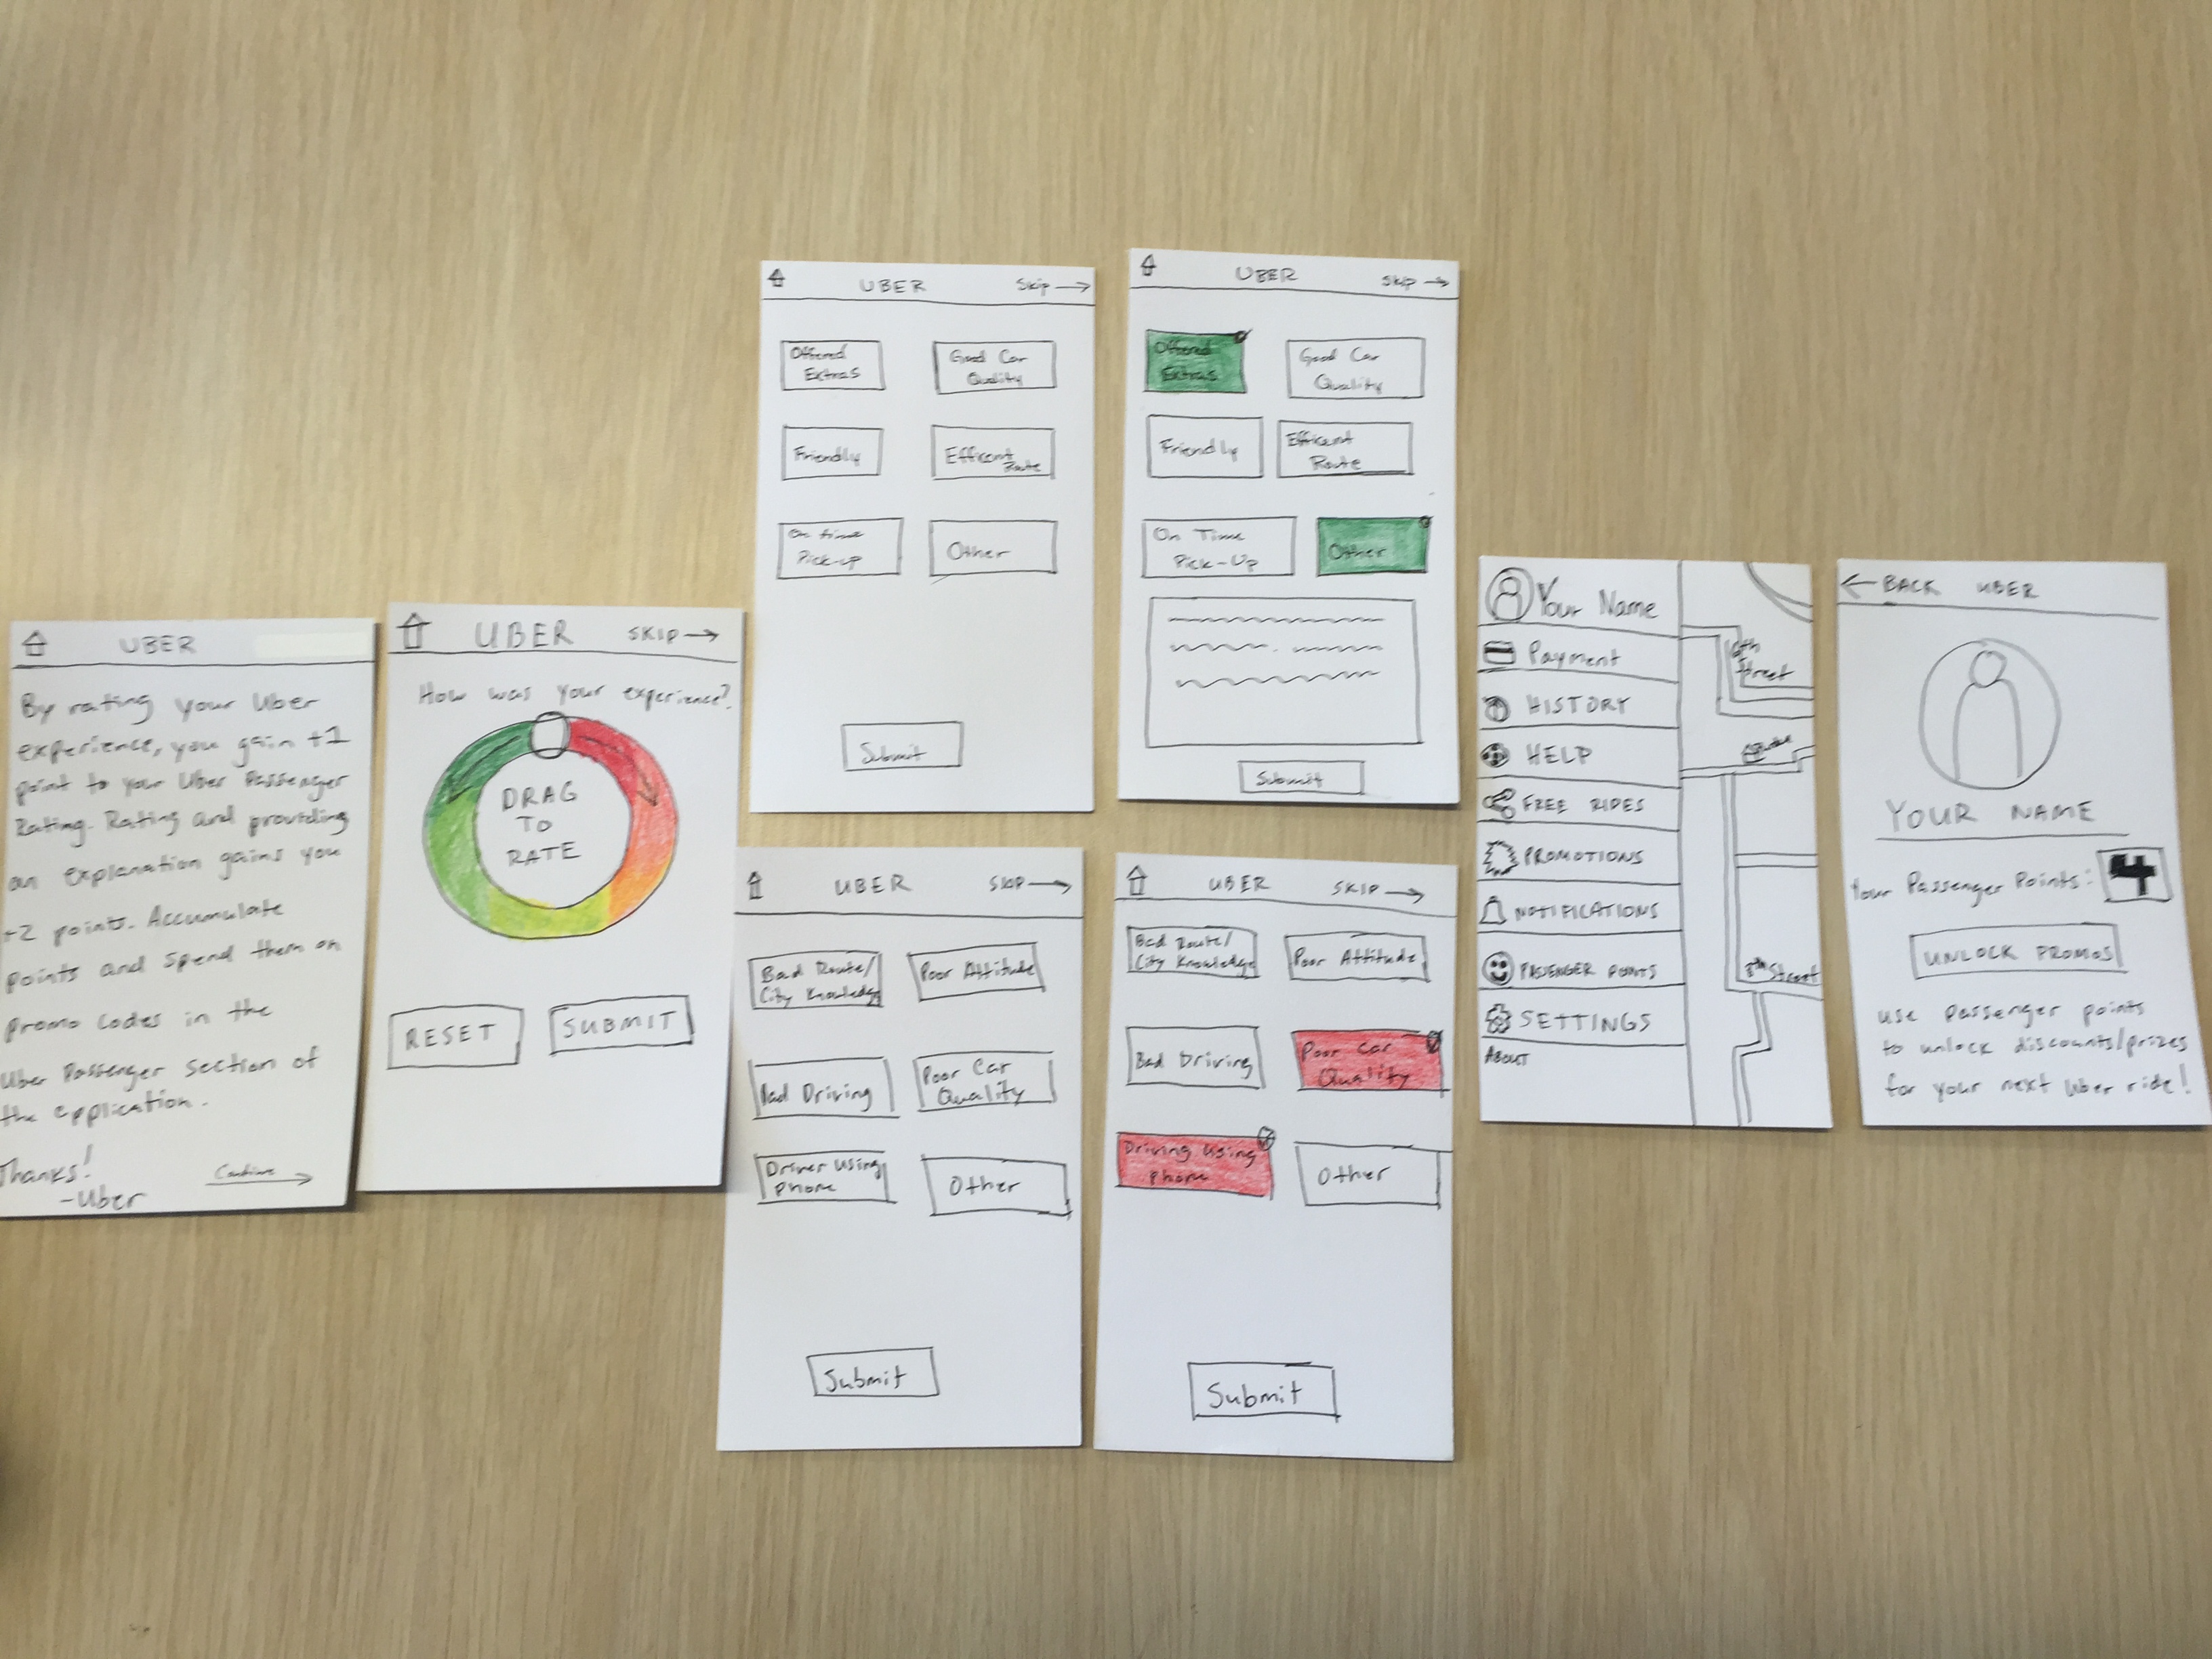 UBER
By rating your Uber
experience, you gain +1
point to your Uber Passenger
Rating. Rating and providing
an explanation gains you
+2 points. Accumulate
points and spend them on
promo codes in the
Uber Passenger section of
the application.
Thanks!
-Uber
Continue
UBER
SKIP
How was your experience?
DRAG
TO
RATE
RESET
SUBMIT
UBER
Skip
Offered
Extras
Good Car
Quality
Friendly
Efficent
Route
On time
Pick-up
Other
Submit
UBER
SKIP
Offered
Extras
Good Car
Quality
Friendly
Efficent
Route
On Time
Pick-Up
Other
Submit
UBER
SKIP
Bad Route/
City Knowledge
Poor Attitude
Bad Driving
Poor Car
Quality
Driver Using
Phone
Other
Submit
UBER
SKIP
Bad Route/
City Knowledge
Poor Attitude
Bad Driving
Poor Car
Quality
Driving Using
Phone
Other
Submit
Your Name
Payment
HISTORY
HELP
FREE RIDES
PROMOTIONS
NOTIFICATIONS
PASSENGER POINTS
SETTINGS
ABOUT
16th
Street
8th Street
BACK UBER
YOUR NAME
Your Passenger Points: 4
UNLOCK PROMOS
use passenger points
to unlock discounts/prizes
for your next Uber ride!